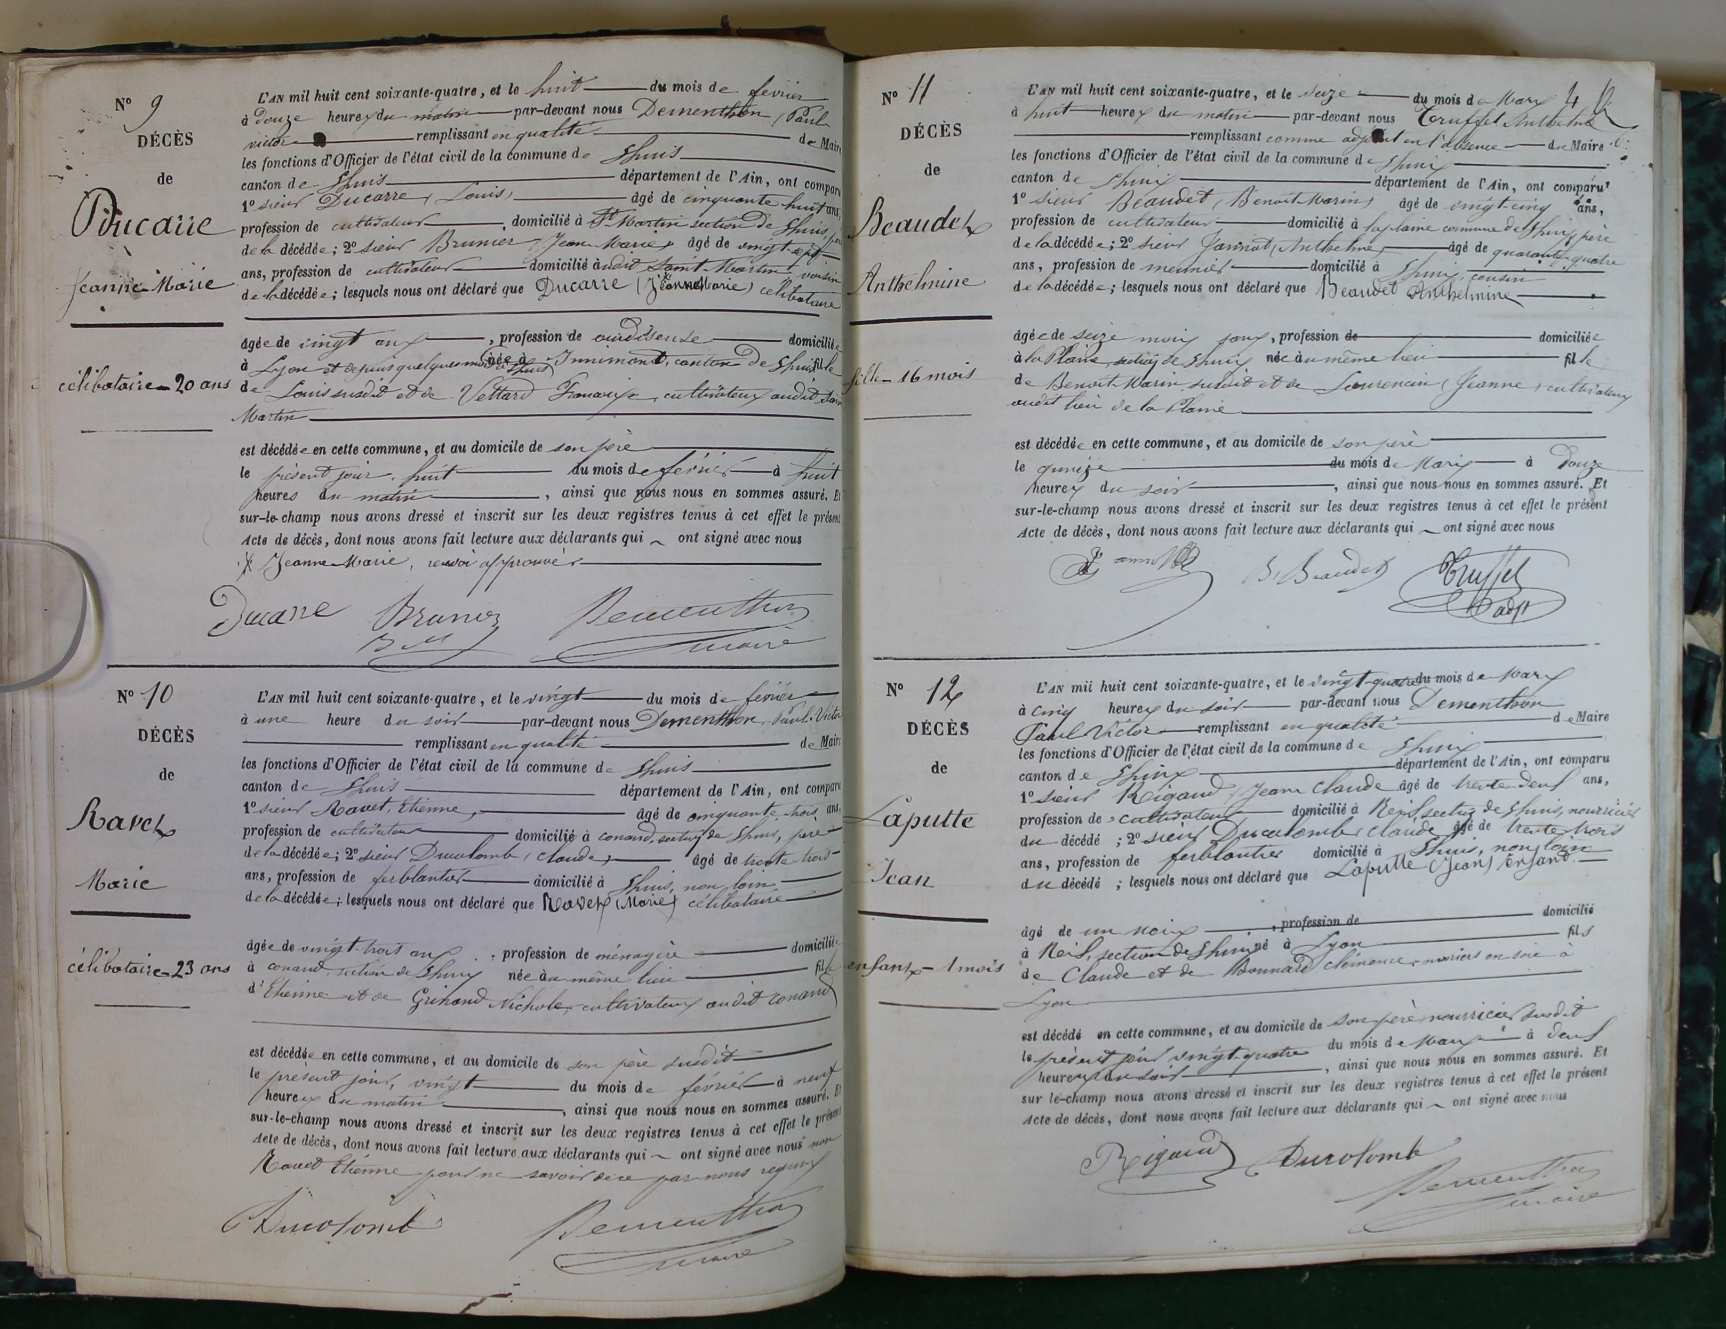 N° 9
DÉCÈS
de
Ducarre
Jeanne-Marie
célibataire - 20 ans
L'AN mil huit cent soixante-quatre, et le huit du mois de février
à douze heures du matin par-devant nous Dementhon, Paul
victor remplissant en qualité de Maire
les fonctions d'Officier de l'état civil de la commune de Lhuis
canton de Lhuis département de l'Ain, ont comparu
1° sieur Ducarre, Louis, âgé de cinquante huit ans,
profession de cultivateur, domicilié à St Martin section de Lhuis, père
de la décédée; 2° sieur Brunier, Jean Marie, âgé de vingt sept
ans, profession de cultivateur domicilié audit Saint Martin, voisin
de la décédée; lesquels nous ont déclaré que Ducarre (Jeanne Marie) célibataire
âgée de vingt ans, profession de ourdisseuse domiciliée
à Lyon et depuis quelques mois à Lhuis née à Innimont, canton de Lhuis fille
de Louis susdit et de Vettard Françoise, cultivateurs audit Saint
Martin
est décédée en cette commune, et au domicile de son père
le présent jour huit du mois de février à huit
heures du matin, ainsi que nous nous en sommes assuré. Et
sur-le-champ nous avons dressé et inscrit sur les deux registres tenus à cet effet le présent
Acte de décès, dont nous avons fait lecture aux déclarants qui ont signé avec nous
Jeanne Marie, renvoi approuvé
Ducarre Brunier Dementhon
B M maire
N° 10
DÉCÈS
de
Ravet
Marie
célibataire - 23 ans
L'AN mil huit cent soixante-quatre, et le vingt du mois de février
à une heure du soir par-devant nous Dementhon, Paul-Victor
remplissant en qualité de Maire
les fonctions d'Officier de l'état civil de la commune de Lhuis
canton de Lhuis département de l'Ain, ont comparu
1° sieur Ravet, Etienne, âgé de cinquante trois ans,
profession de cultivateur domicilié à conand, section de Lhuis, père
de la décédée; 2° sieur Ducolomb, claude, âgé de trente trois
ans, profession de ferblantier domicilié à Lhuis, non loin
de la décédée; lesquels nous ont déclaré que Ravet (Marie) célibataire
âgée de vingt-trois ans, profession de ménagère domiciliée
à conand, section de Lhuis née au même lieu fille
d'Etienne et de Guinand Nichole, cultivateurs audit conand
est décédée en cette commune, et au domicile de son père susdit
le présent jour, vingt du mois de février à neuf
heures du matin, ainsi que nous nous en sommes assuré. Et
sur-le-champ nous avons dressé et inscrit sur les deux registres tenus à cet effet le présent
Acte de décès, dont nous avons fait lecture aux déclarants qui ont signé avec nous non
Ravet Etienne pour ne savoir de ce par nous requis
Ducolomb Dementhon
maire
N° 11
DÉCÈS
de
Beaudet
Anthelmine
fille - 16 mois
L'AN mil huit cent soixante-quatre, et le seize du mois de Mars 4
à huit heures du matin par-devant nous Truffet Anthelme
remplissant comme adjoint en l'absence du Maire
les fonctions d'Officier de l'état civil de la commune de Lhuis
canton de Lhuis département de l'Ain, ont comparu
1° sieur Beaudet, Benoit Marin, âgé de vingt cinq ans,
profession de cultivateur domicilié à la plaine commune de Lhuis, père
de la décédée; 2° sieur Jannet, Anthelme, âgé de quarante-quatre
ans, profession de meunier domicilié à Lhuis, cousin
de la décédée; lesquels nous ont déclaré que Beaudet Anthelmine
âgée de seize mois, profession de domiciliée
à la Plaine section de Lhuis née au même lieu fille
de Benoit Marin susdit et de Laurencin, Jeanne, cultivateurs
audit lieu de la Plaine
est décédée en cette commune, et au domicile de son père
le quinze du mois de Mars à douze
heures du soir, ainsi que nous nous en sommes assuré. Et
sur-le-champ nous avons dressé et inscrit sur les deux registres tenus à cet effet le présent
Acte de décès, dont nous avons fait lecture aux déclarants qui ont signé avec nous
B. Beaudet Truffet
adjt
N° 12
DÉCÈS
de
Laputte
Jean
enfant - 1 mois
L'AN mil huit cent soixante-quatre, et le vingt-quatre du mois de Mars
à cinq heures du soir par-devant nous Dementhon
Paul Victor remplissant en qualité de Maire
les fonctions d'Officier de l'état civil de la commune de Lhuis
canton de Lhuis département de l'Ain, ont comparu
1° sieur Rigaud, Jean Claude âgé de trente deux ans,
profession de cultivateur domicilié à Rix, section de Lhuis, nourricier
du décédé; 2° sieur Ducolomb, claude, âgé de trente trois
ans, profession de ferblantier domicilié à Lhuis, non loin
du décédé; lesquels nous ont déclaré que Laputte (Jean) Enfant
âgé de un mois, profession de domicilié
à Rix, section de Lhuis né à Lyon fils
de Claude et de Bonnard clémence, ouvriers en soie à
Lyon
est décédé en cette commune, et au domicile de son père nourricier susdit
le présent jour vingt-quatre du mois de Mars à deux
heures du soir, ainsi que nous nous en sommes assuré. Et
sur le-champ nous avons dressé et inscrit sur les deux registres tenus à cet effet le présent
Acte de décès, dont nous avons fait lecture aux déclarants qui ont signé avec nous
Rigaud Ducolomb
Dementhon
maire